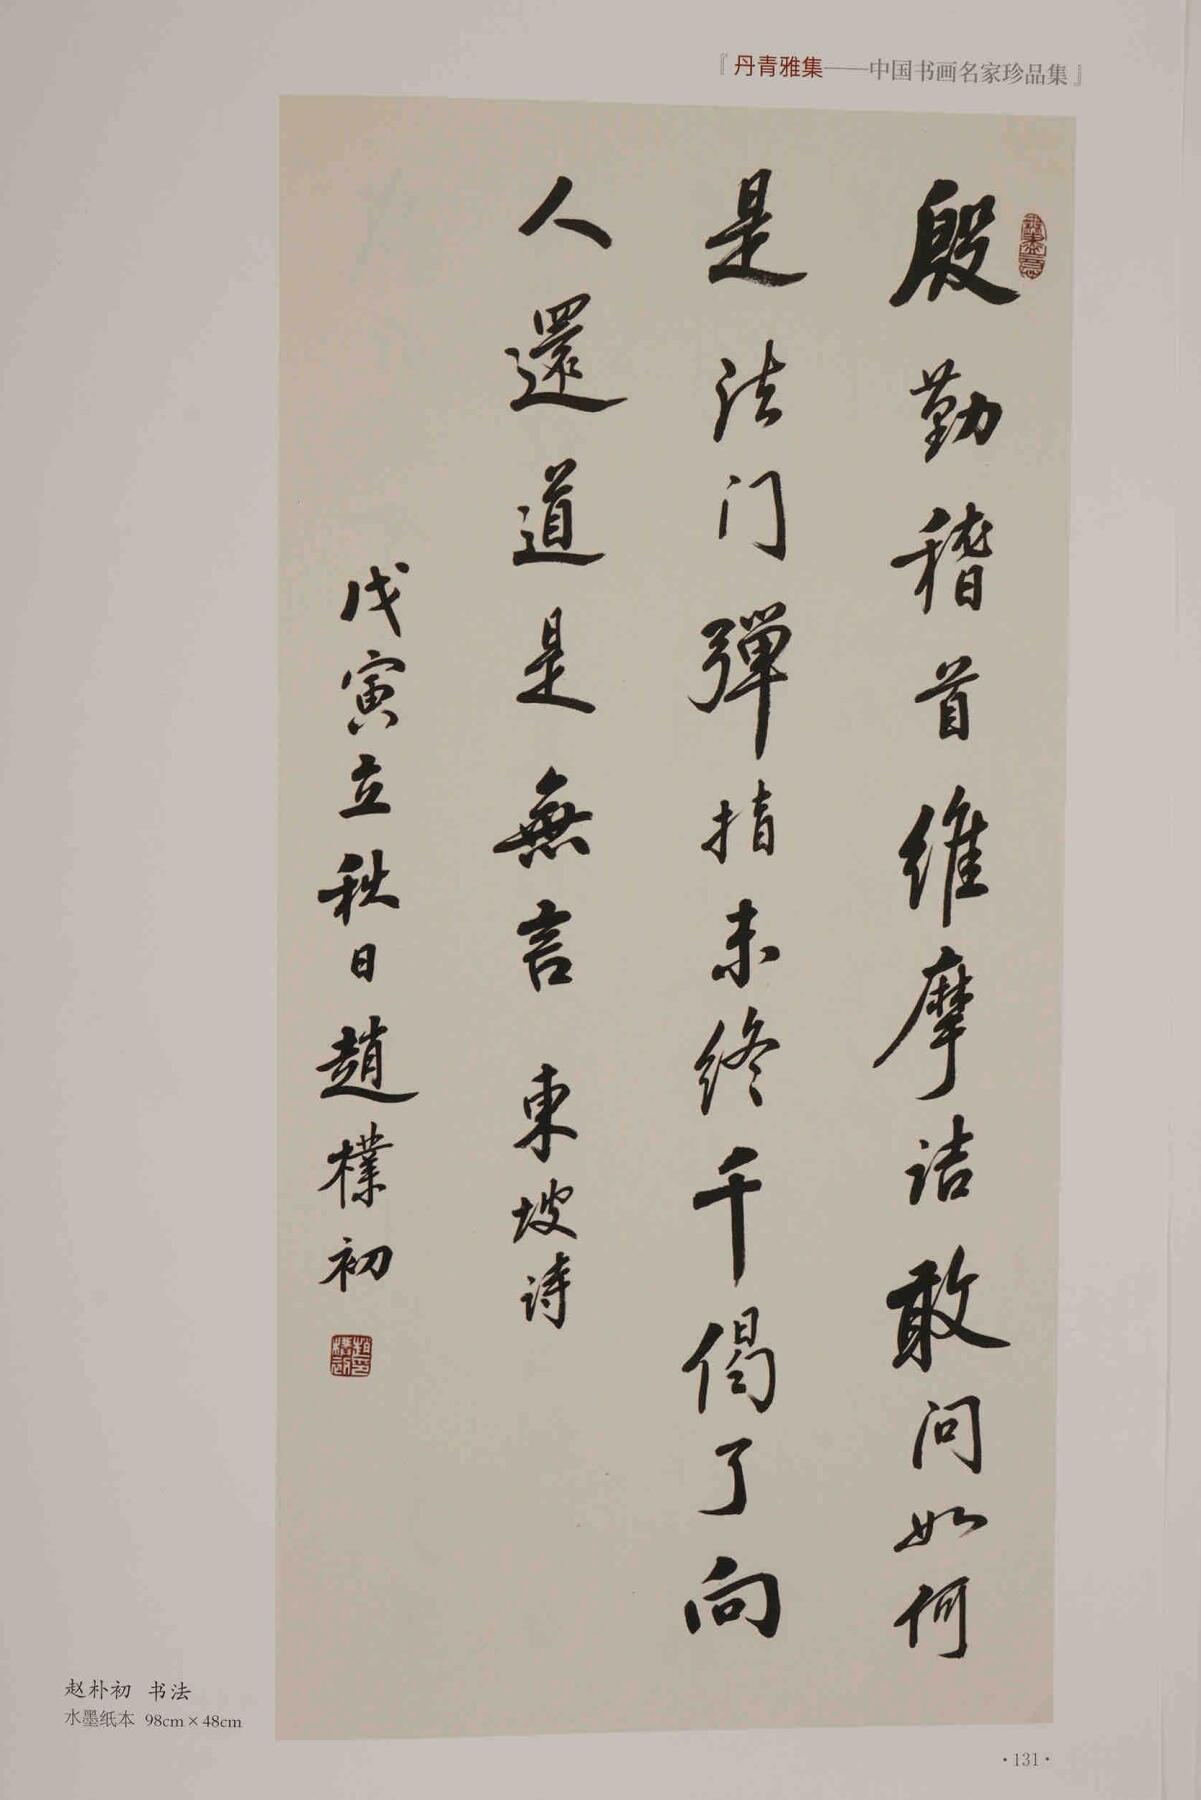 『丹青雅集——中国书画名家珍品集』
殷勤稽首維摩诘敢问如何
是法门彈指未终千偈了向
人還道是無言 東坡诗
戊寅立秋日趙樸初
赵朴初 书法
水墨纸本 98cm×48cm
·131·